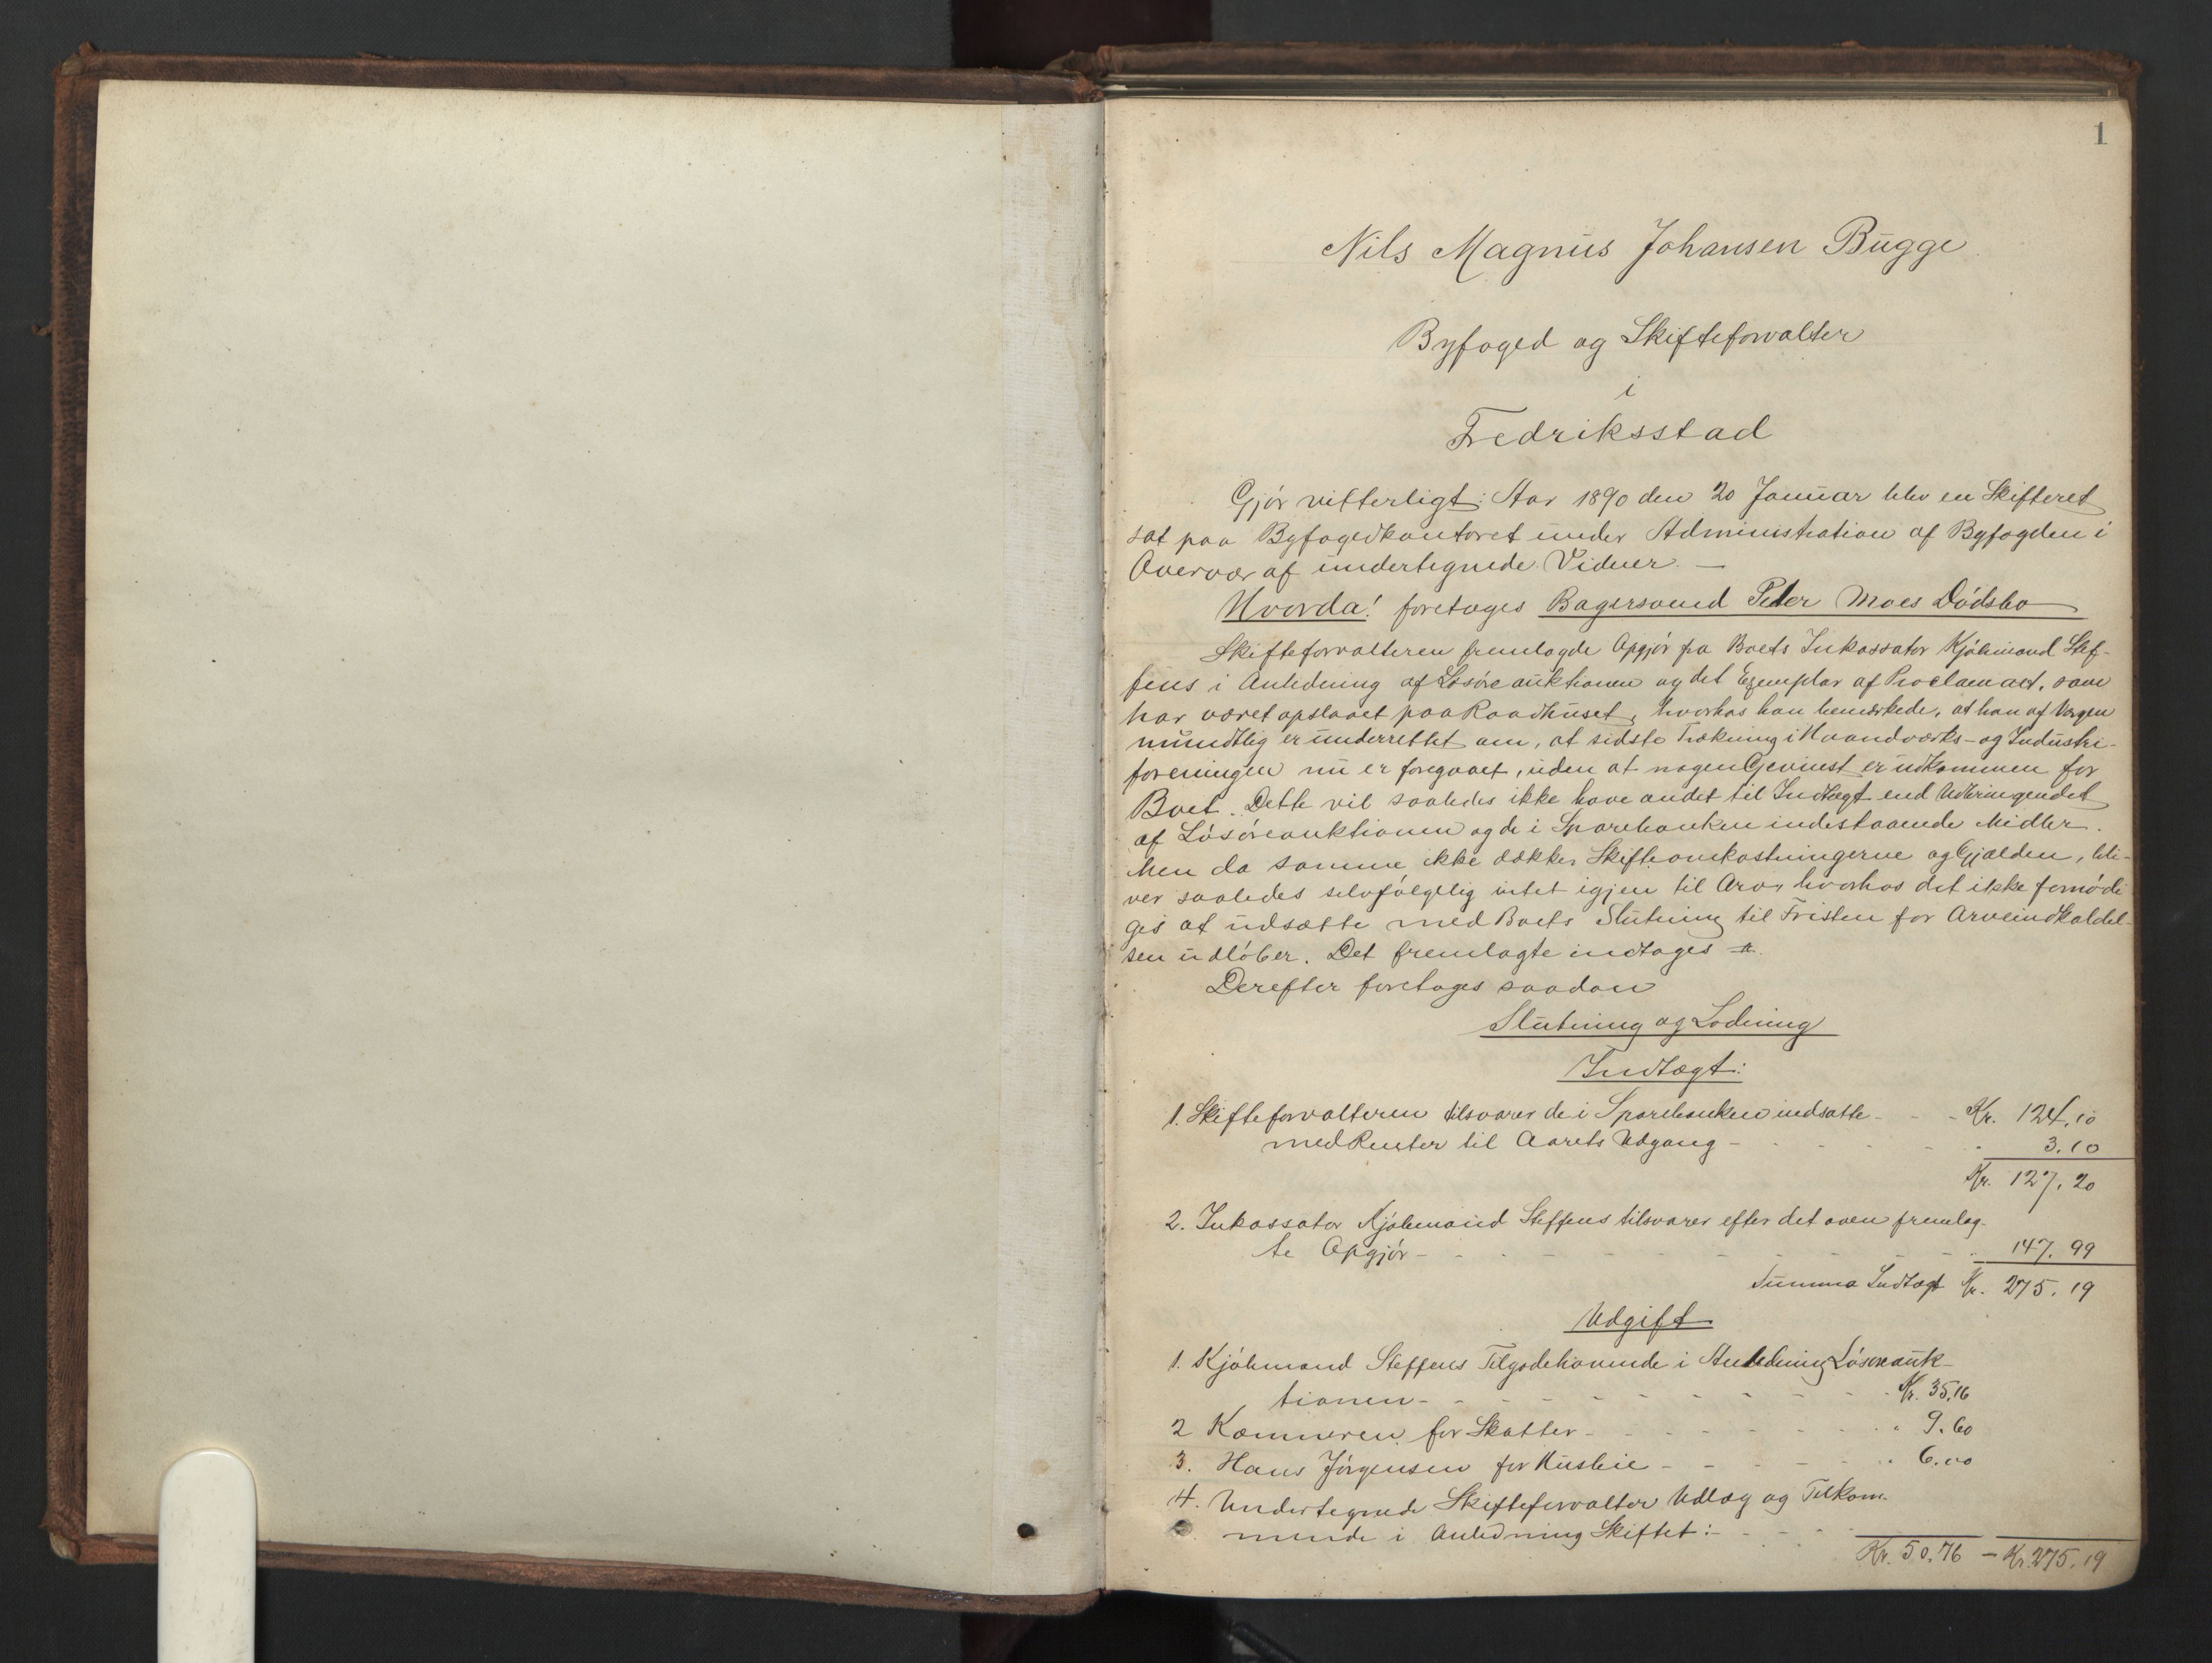 1
Nils Magnus Johansen Bugge
Byfoged og Skifteforvalter
i
Fredriksstad
Gjör vitterligt: Aar 1890 den 20 Januar blev en Skifteret
sat paa Byfogedkontoret under Administration af Byfogden i
Overvær af undertegnede Vidner. —
Hvorda! foretoges Bagersvend Peter Moes Dödsbo
Skifteforvalteren fremlagde Opgjör fra Boets Inkassator Kjöbmand Stef-
fens i Anledning af Lösöreauktionen og det Exemplar af Proclamaet, som
har været opslaaet paa Raadhuset, hvorhos han bemærkede, at han af Vergen
mundtlig er underrettet om, at sidste Trækning i Haandværks- og Industri-
foreningen nu er foregaaet, uden at nogen Gevinst er udkommen for
Boet. Dette vil saaledes ikke have andet til Indtægt end Udbringendet
af Lösöreauktionen og de i Sparebanken indestaaende Midler.
Men da samme ikke dækker Skifteomkostningerne og Gjælden, bli-
ver saaledes selvfölgelig intet igjen til Arv, hvorhos det ikke fornödi
ges at udsætte med Boets Slutning til Fristen for Arveindkaldel-
sen udlöber. Det fremlagte indtages
Derefter foretoges saadan
Slutning og Lodning
Indtægt:
1. Skifteforvalteren tilsvarer de i Sparebanken indsatte - - Kr. 124.10
med Renter til Aarets Udgang - - - - - 3.10
Kr. 127.20
2. Inkassator Kjöbmand Steffens tilsvarer efter det oven fremlag-
te Opgjör - - - - - - - - - - 147.99
Summa Indtægt Kr. 275.19
Udgift
1. Kjöbmand Steffens Tilgodehavende i Anledning Lösöreauk-
tionen - - - - - - - - - Kr. 35.16
2 Kæmneren for Skatter - - - - - - - " 9.60
3. Hans Jörgensen for Husleie - - - - - " 6.00
4. Undertegnede Skifteforvalter Udlæg og Tilkom-
mende i Anledning Skiftet: - - - -
Kr. 50.76 — Kr. 275.19